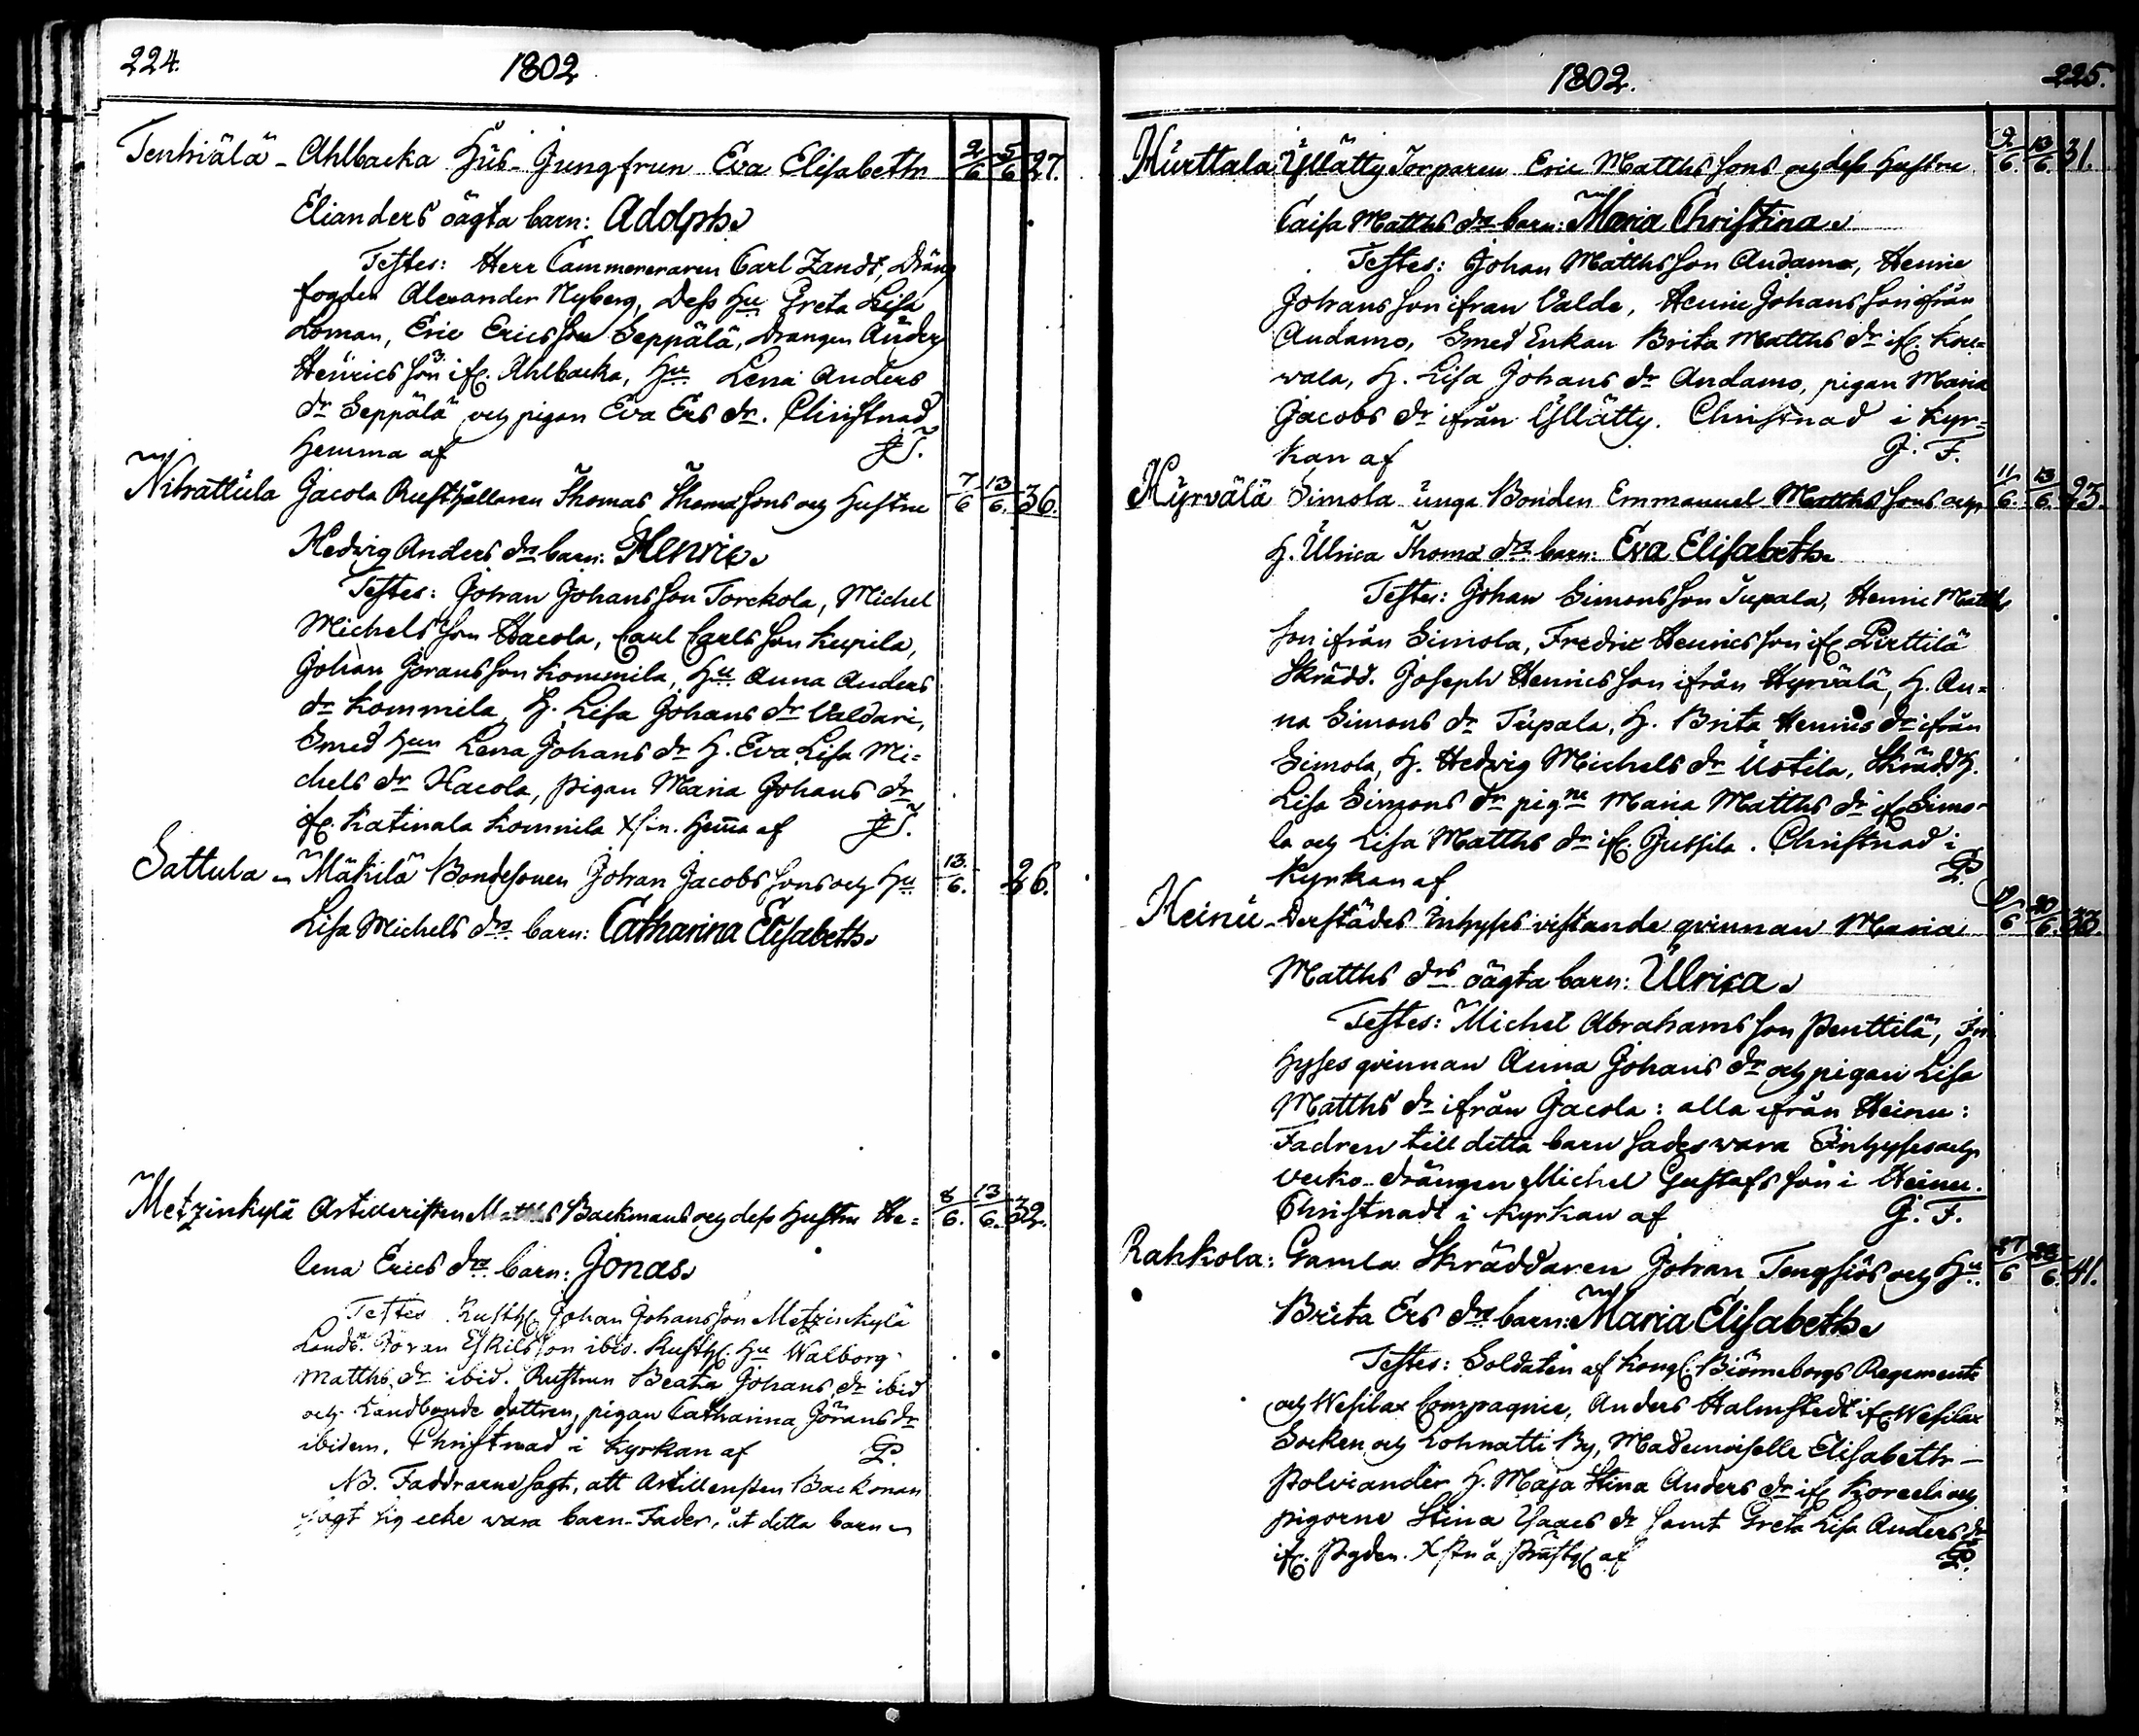 224.
1802
Tenhiälä - Ahlbacka Hus-Jungfrun Eva Elisabeth 2/6 5/6 27.
Elianders oägta barn: Adolph.
Testes: Herr Cammereraren Carl Zandt, Dräng
fogden Alexander Nyberg, Dess Hu Greta Lisa
Loman, Eric Ericsson Seppälä, Drangen Anders
Henricsson ifr. Ahlbacka, Hu Lena Anders
dr Seppälä och pigan Eva Ers dr. Christnad
hemma af
Nihattula Jacola Rusthållaren Thomas Thomæ Sons och Hustru 7/6 13/6. 36.
Hedvig Anders drs barn: Henric.
Testes: Johan Johansson Torckola, Michel
Michelsson Hacola, Carl Carlsson Kupila,
Johan Joransson Kommila, Hu Anna Anders
dr Kommila, H. Lisa Johans dr Valdari,
Smed Hun Lena Johans dr H. Eva Lisa Mi=
chels dr Hacola, pigan Maria Johans dr
ifr. Katinala Kommila Xsin. Hema af
Sattula - Mäkilä Bondesonen Johan Jacobs Sons och Hu 13/6. 26.
Lisa Michels drs barn: Catharina Elisabeth.
Metzinkylä Artilleristen Matths Backmans och dess Hustru He= 8/6. 13/6. 32.
lena Erics drs barn: Jonas.
Testes Rusth. Johan Johansson Metzinkylä
Landb. Jöran Eskilsson ibid. Rusth. Hu Walborg
Matths dr ibid. Beata Johans dr ibid
och Landbonde dottren, pigan Catharina Jörans dr
ibidem. Christnad i Kyrkan af P.
NB. Faddrarne sagt, att Artilleristen Backman
sagt sig icke wara barn-Fader, åt detta barn
1802.
225.
Hurttala Yllätty Torparen Eric Matths Sons och dess Hustru 9/6. 13/6. 31.
Caisa Matths drs barn: Maria Christina.
Testes: Johan Matthsson Andamo, Henric
Johansson ifran Valde, Henric Johansson ifrån
Andamo, Smed Enkan Brita Matths dr ifr. Kou=
wala, H. Lisa Johans dr Andamo, pigan Maria
Jacobs dr ifrån Yllätty. Christnad i Kyr=
kan af J. F.
Hyrvälä Simola unga Bonden Emmanuel Matths Sons och 11/6. 13/6. 23.
H. Ulrica Thomæ drs barn: Eva Elisabeth.
Testes: Johan Simonsson Tupala, Henric Matths
Son ifrån Simola, Fredric Henricsson ifr. Pirttilä
Skrädd. Joseph Henricsson ifrån Hyrvälä, H. An=
na Simons dr Tupala, H. Brita Henrics dr ifrån
Simola, H. Hedvig Michels dr Ustila, Skrädd H.
Lisa Simons dr pigne Maria Matths dr ifr Simo-
la och Lisa Matths dr ifr. Jussila. Christnad i
Kyrkan af P.
Heinu - Derstädes Inhyses vistande qvinnan Maria 19/6 20/6. 33.
Matths drs oägta barn: Ulrica.
Testes: Michel Abrahamsson Penttilä, In
hyses qvinnan Anna Johans dr och pigan Lisa
Matths dr ifrån Jacola: alla ifrån Heinu:
Fadren till detta barn sades wara Inhyses och
drängen Michel Gustafsson i Heinu.
Christnadt i Kyrkan af J. F.
Rahkola: Gamla Skräddaren Johan Tengsiös och Hu 27/6 28/6. 41.
Brita Ers drs barn: Maria Elisabeth.
Testes: Soldaten af Kongl. Biörneborgs Regemente
och Wesilax Compagnie, Anders Halmstedt ifr. Wesilax
Socken och Lohnatti By, Mademoiselle Elisabeth -
Polviander H. Maja Stina Anders dr ifr och
pigorne Stina Isaacs dr samt Greta Lisa Anders dr
ifr. P.